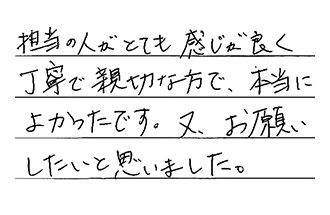 担当の人がとても感じが良く
丁寧で親切な方で、本当に
よかったです。又、お願い
したいと思いました。